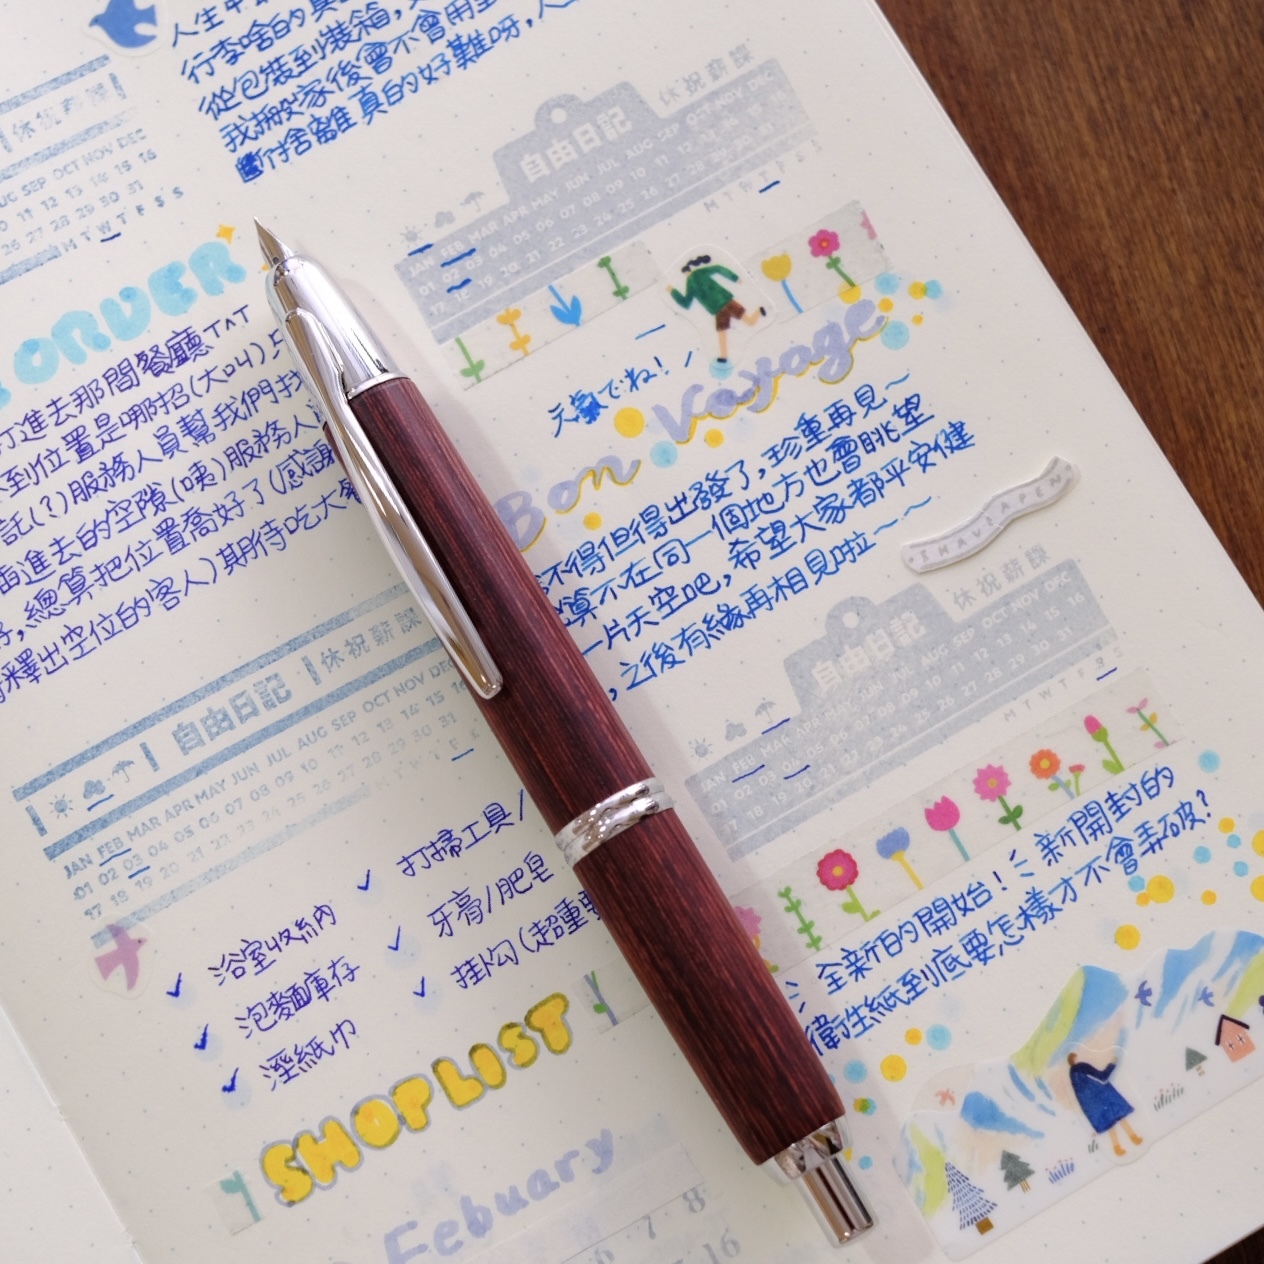 人生中
行李啥的真
從包裝到裝箱,
我搬家後會不會用
斷捨離真的好難呀,人
休祝薪課
AUG SEP OCT NOV DEC
10 11 12 13 14 15 16
26 27 28 29 30 31
M T W T F S S
ORDER
打進去那間餐廳TAT
到位置是哪招(大叫)只
託(?)服務人員幫我們找
插進去的空隙(咦)服務人
,總算把位置喬好了(感謝
釋出空位的客人)期待吃大餐
自由日記 休祝薪課
JAN FEB MAR APR MAY JUN JUL AUG SEP OCT NOV DEC
01 02 03 04 05 06 07 08 09 10 11 12 13 14 15 16
17 18 19 20 21 22 23 24 25 26 27 28 29 30 31
M T W T F S S
✓ 浴室收納
✓ 泡麵庫存
✓ 溼紙巾
✓ 打掃工具/
✓ 牙膏/肥皂
✓ 掛勾(超重要
SHOPLIST
Febuary
6 7 8
16
自由日記
休祝薪課
JAN FEB MAR APR MAY JUN JUL AUG SEP OCT NOV DEC
01 02 03 04 05 06 07 08 09 10 11 12 13 14 15 16
17 18 19 20 21 22 23
M T W T
元氣でね!
Bon Voyage
不得但得出發了,珍重再見~
算不在同一個地方也會眺望
一片天空吧,希望大家都平安健
,之後有緣再相見啦~~~
I HAVE A PEN
自由日記
休祝薪課
JAN FEB MAR APR MAY JUN JUL AUG SEP OCT NOV DEC
01 02 03 04 05 06 07 08 09 10 11 12 13 14 15 16
17 18 19 20 21
M T W T F S S
全新的開始!新開封的
衛生紙到底要怎樣才不會弄破?